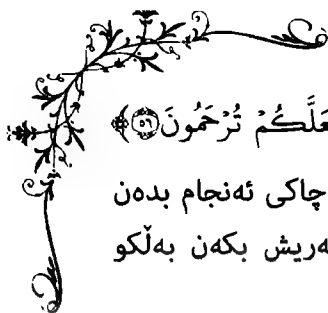 عَلَّكُمْ تُرْحَمُونَ ﴿٥٦﴾
چاکی ئەنجام بدەن
ەریش بکەن بەڵکو